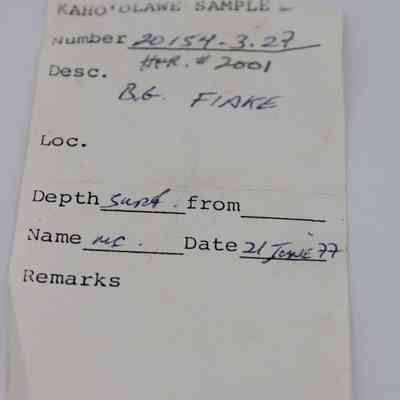 KAHO'OLAWE SAMPLE
Number 20154-3.27
HHR. # 2001
Desc.
B.G. FLAKE
Loc.
Depth surf. from
Name MC. Date 21 June 77
Remarks